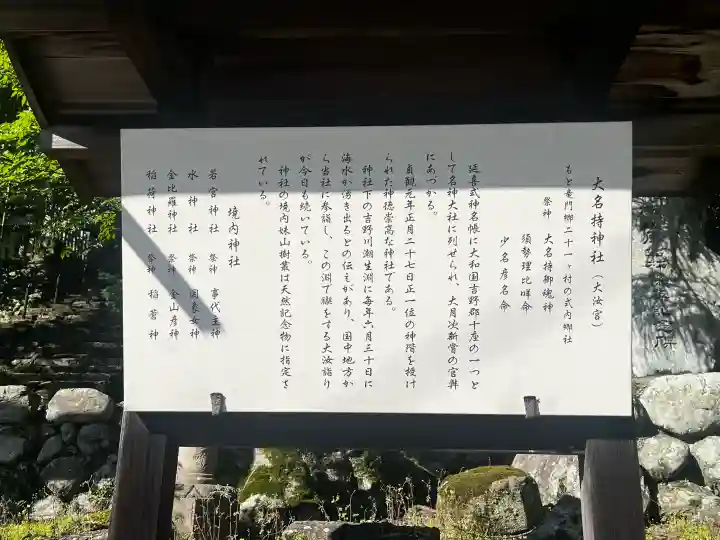 大名持神社（大汝宮）
右と竜門郷二十一ヶ村の式内郷社
祭神 大名持御魂神
須勢理比咩命
少名彦名命
延喜式神名帳に大和国吉野郡十座の一つと
して名神大社に列せられ、大月次新嘗の官幣
にあづかる。
貞観元年正月二十七日正一位の神階を授け
られた神徳崇高な神社である。
神社下の吉野川潮生淵に毎年六月三十日に
海水が湧き出るとの伝えがあり、国中地方か
ら当社に参詣し、この淵で禊をする大汝詣り
が今日も続いている。
神社の境内妹山樹叢は天然記念物に指定さ
れている。
境内神社
若宮神社 祭神 事代主神
水神社 祭神 罔象女神
金比羅神社 祭神 金山彦神
稲荷神社 祭神 稲蒼神